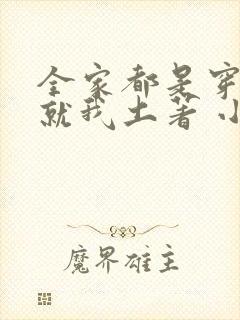 全家都是穿
就我土著 小
魔界雄主